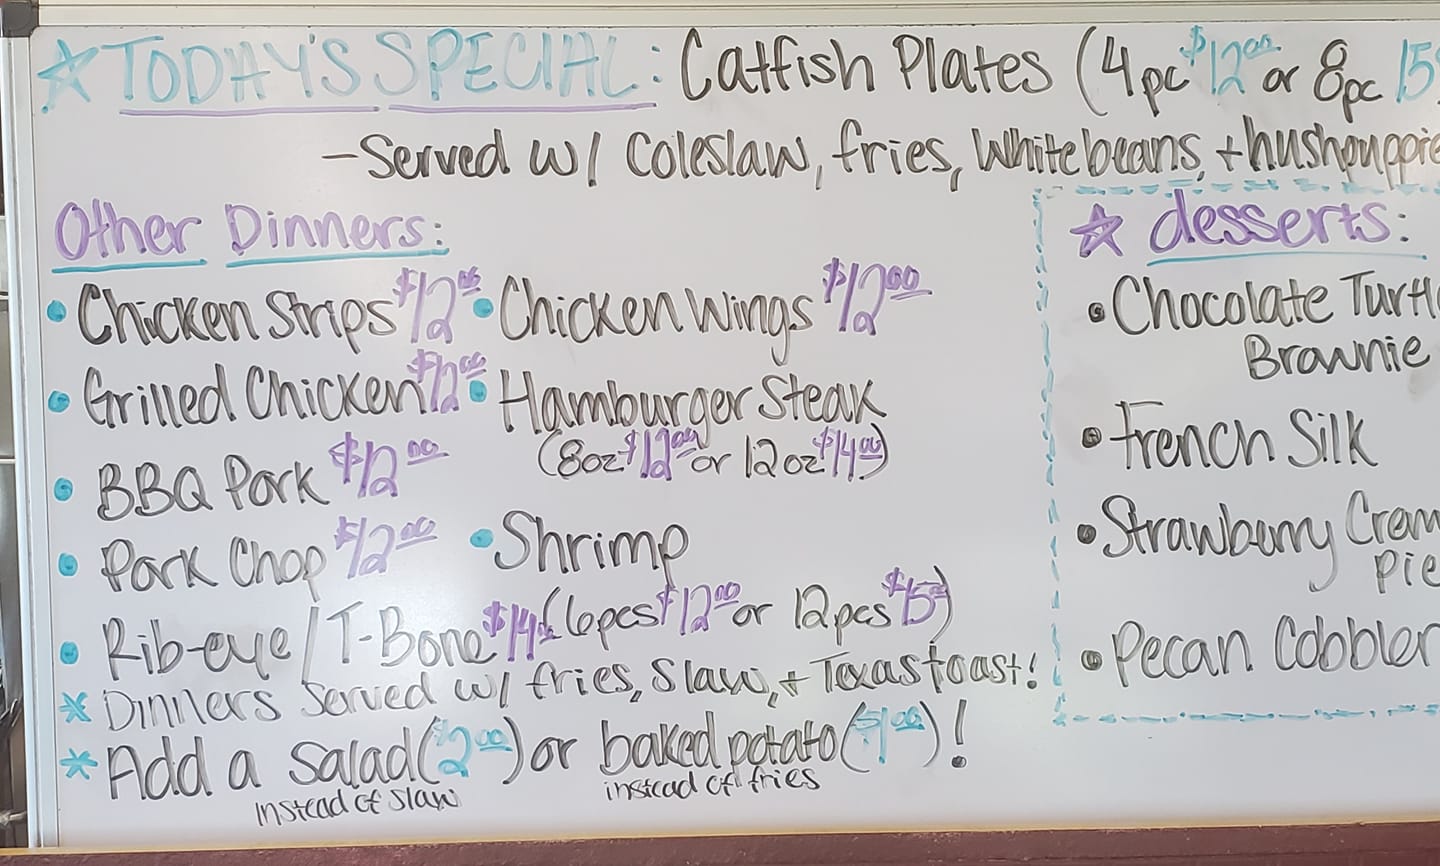 ☆ TODAY'S SPECIAL: Catfish Plates (4pc $12.00 or 8pc 15
-Served w/ Coleslaw, fries, Whitebeans, + hushpuppie
Other Dinners:
• Chicken Strips $12.00 • Chicken Wings $12.00
• Grilled Chicken $12.00 • Hamburger Steak
(8oz $12.00 or 12oz $14.00)
• BBQ Pork $12.00
• Pork Chop $12.00 • Shrimp
(6pcs $12.00 or 12pcs $15.00)
• Rib-eye/T-Bone $14
* Dinners Served w/ fries, Slaw, + Texas toast!
* Add a Salad ($2.00) or baked potato ($1.00)!
instead of slaw instead of fries
☆ desserts:
• Chocolate Turtl
Brownie
• French Silk
• Strawburry Cream
pie
• Pecan Cobbler